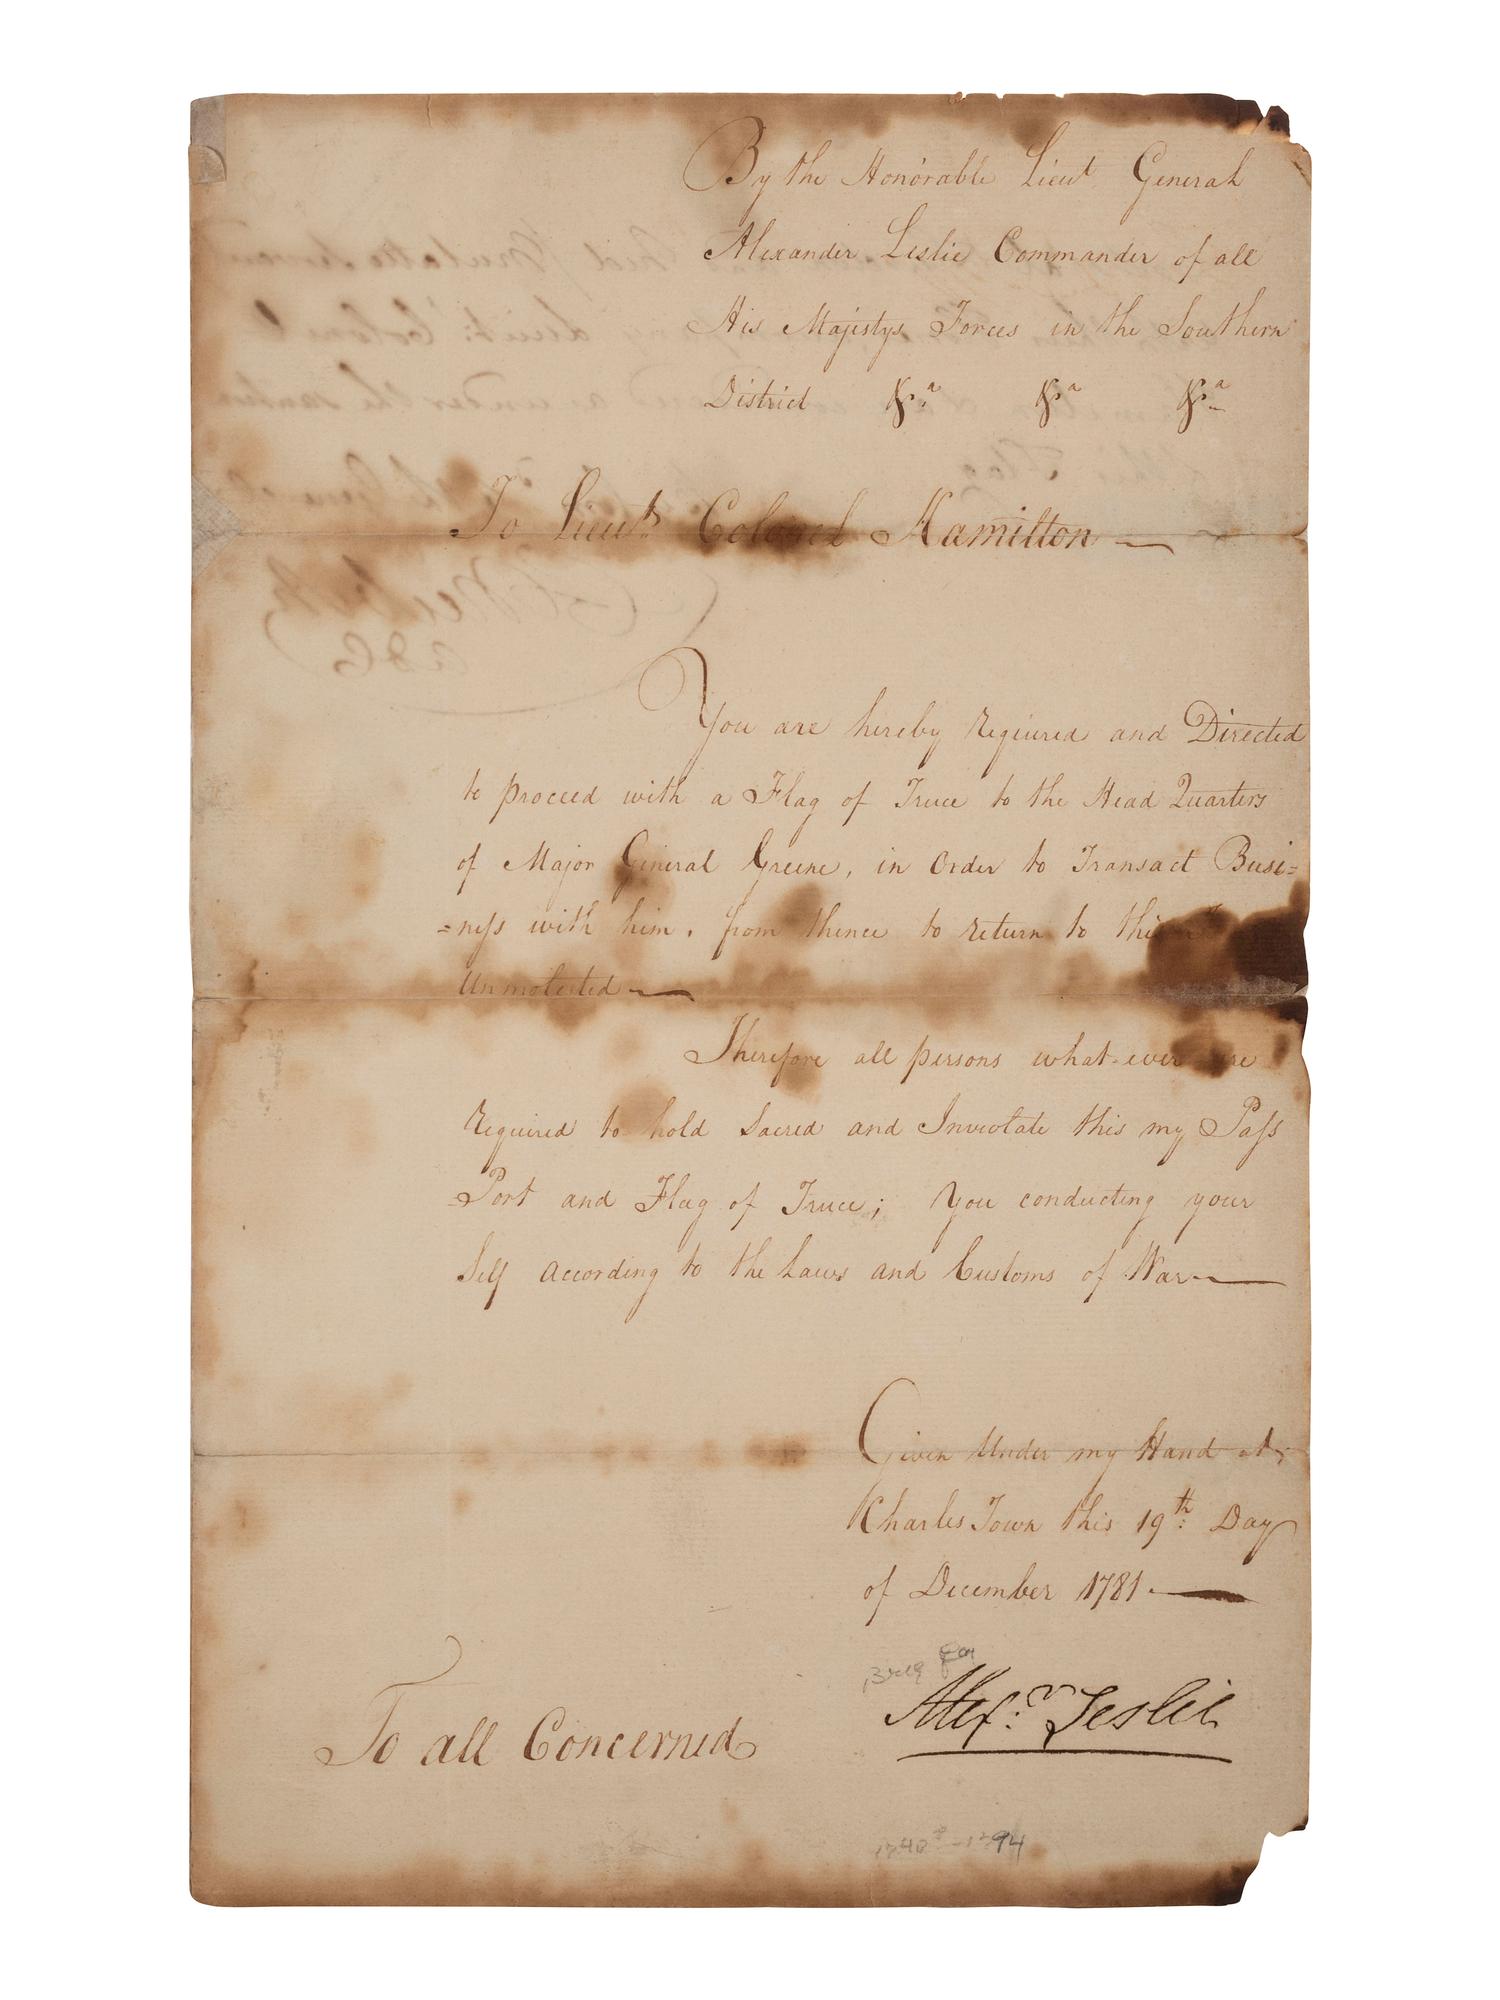 By the Honorable Lieut General
Alexander Leslie Commander of all
His Majestys Forces in the Southern
District &ca &ca &ca
To Lieut. Colonel Hamilton —
You are hereby required and Directed
to proceed with a Flag of Truce to the Head Quarters
of Major General Greene, in Order to Transact Busi=
=ness with him. from thence to return to this
Unmolested —
Therefore all persons what-ever are
required to hold Sacred and Inviolate this my Pass
Port and Flag of Truce; You conducting your
Self according to the Laws and Customs of War —
Given Under my Hand at
Charles Town this 19th: Day
of December 1781. —
Brig Gen
Alexr: Leslie
To all Concerned
1740?-1794